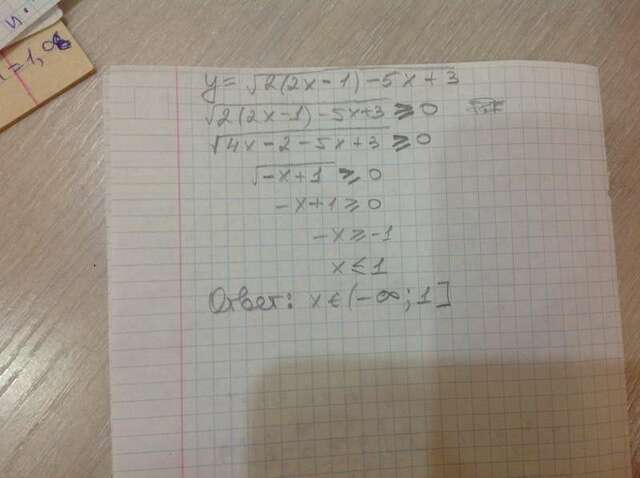 y = √2(2x-1)-5x+3
√2(2x-1)-5x+3 ≥ 0
√4x-2-5x+3 ≥ 0
√-x+1 ≥ 0
-x+1 ≥ 0
-x ≥ -1
x ≤ 1
Ответ: x ∈ (-∞; 1]